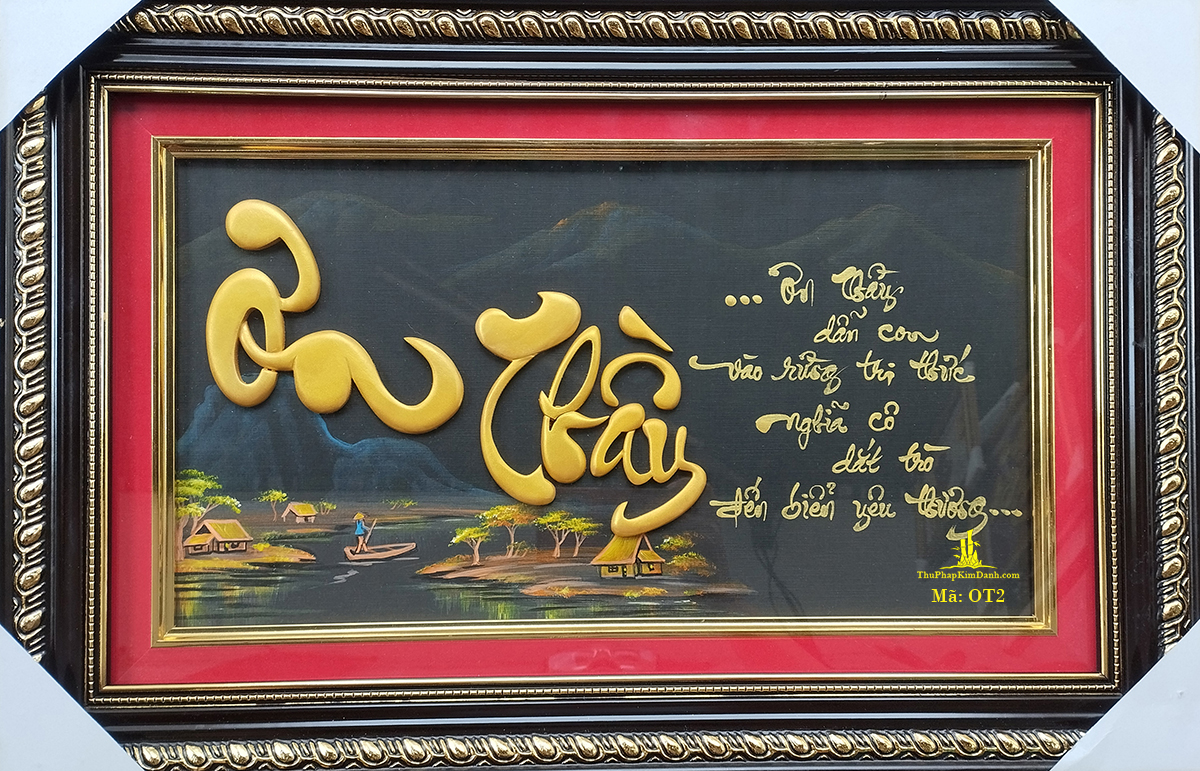 Ơn Thầy
... Ơn thầy
dẫn con
vào rừng tri thức
nghĩa cô
dắt trò
đến biển yêu thương...
ThuPhapKimDanh.com
Mã: OT2